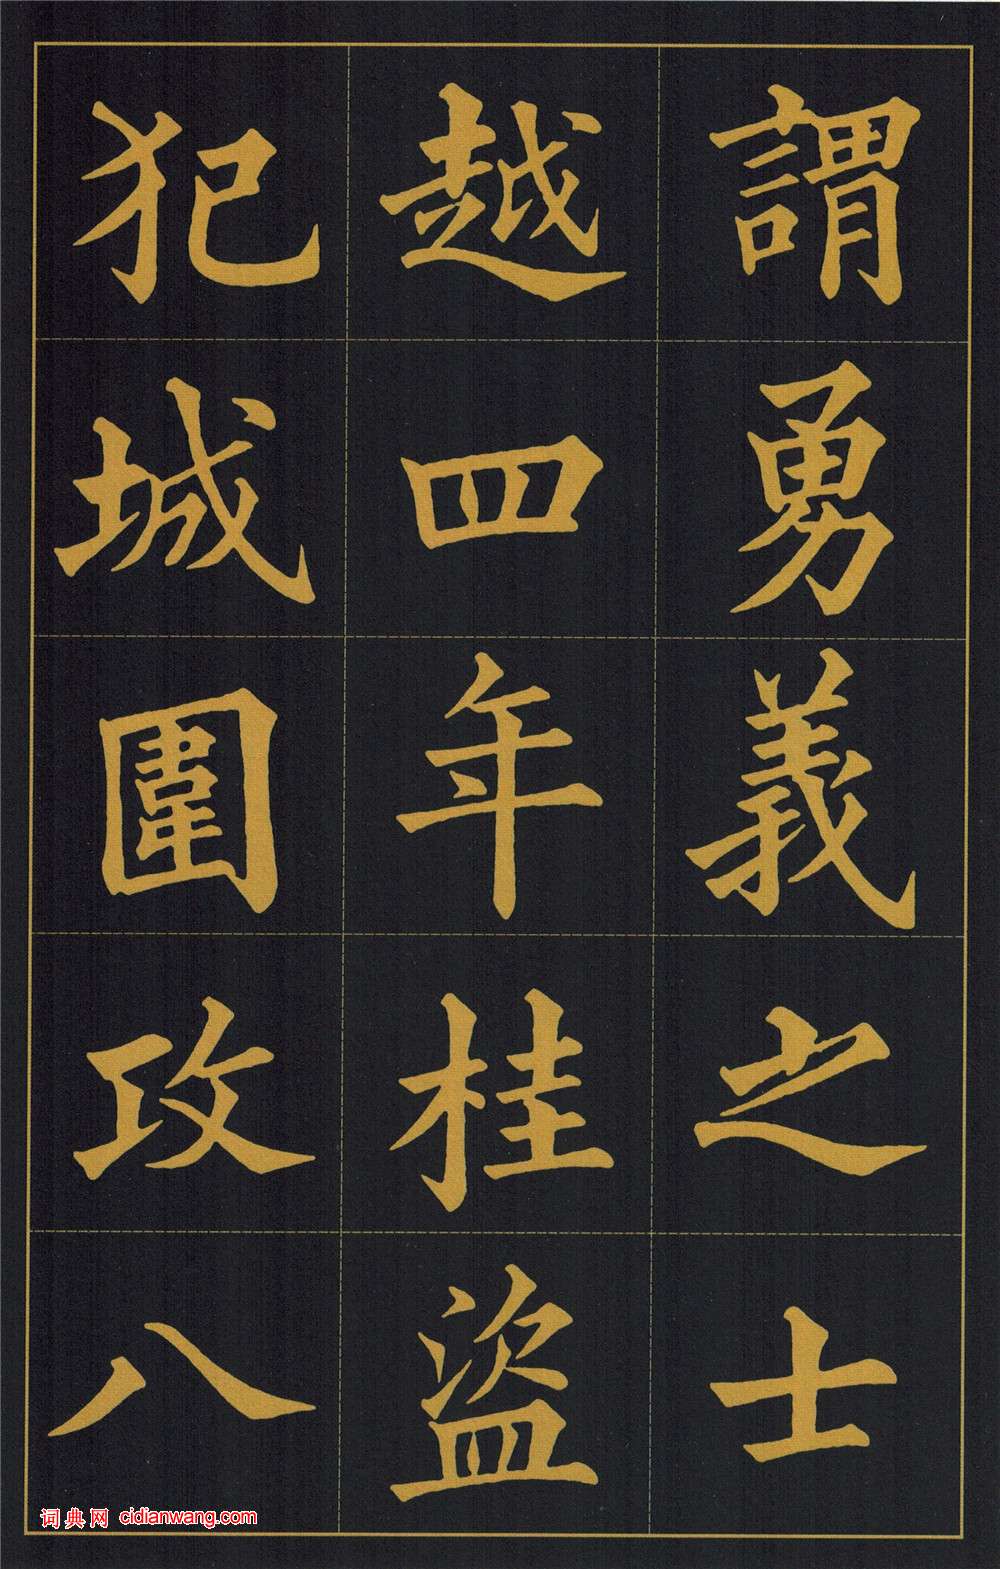 謂勇義之士
越四年桂盜
犯城圍攻八
词典网 cidianwang.com